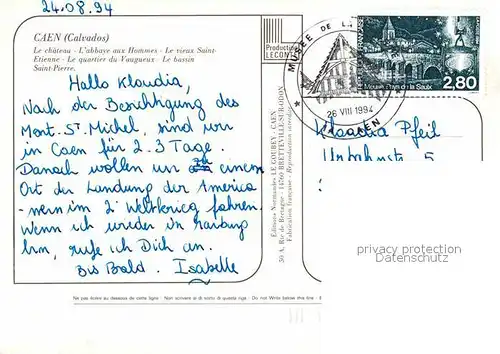 24.08.94
CAEN (Calvados)
Le château - L'abbaye aux Hommes - Le vieux Saint-
Etienne - Le quartier du Vaugueux - Le bassin
Saint-Pierre.
Production
LECONTE
Hallo Klaudia,
Nach der Besichtigung des
Mont-St Michel, sind wir
in Caen für 2-3 Tage.
Danach wollen wir zu einem
Ort der Landung der America
-nern im 2. Weltkrieg fahren.
Wenn ich wieder in Marburg
bin, rufe ich Dich an.
Bis Bald. Isabelle
Editions Normandes LE GOUBEY - CAEN
50 A, Rue de Bretagne - 14760 BRETTEVILLE-SUR-ODON
Fabrication française - Reproduction interdite
MUSEE DE LA
26 VIII 1994
CAEN
2,80
Klaudia Pfeil
5
privacy protection
Datenschutz
Ne pas écrire au dessous de cette ligne - Non scrivere al di sotto di questa riga - Do not Write below this line -